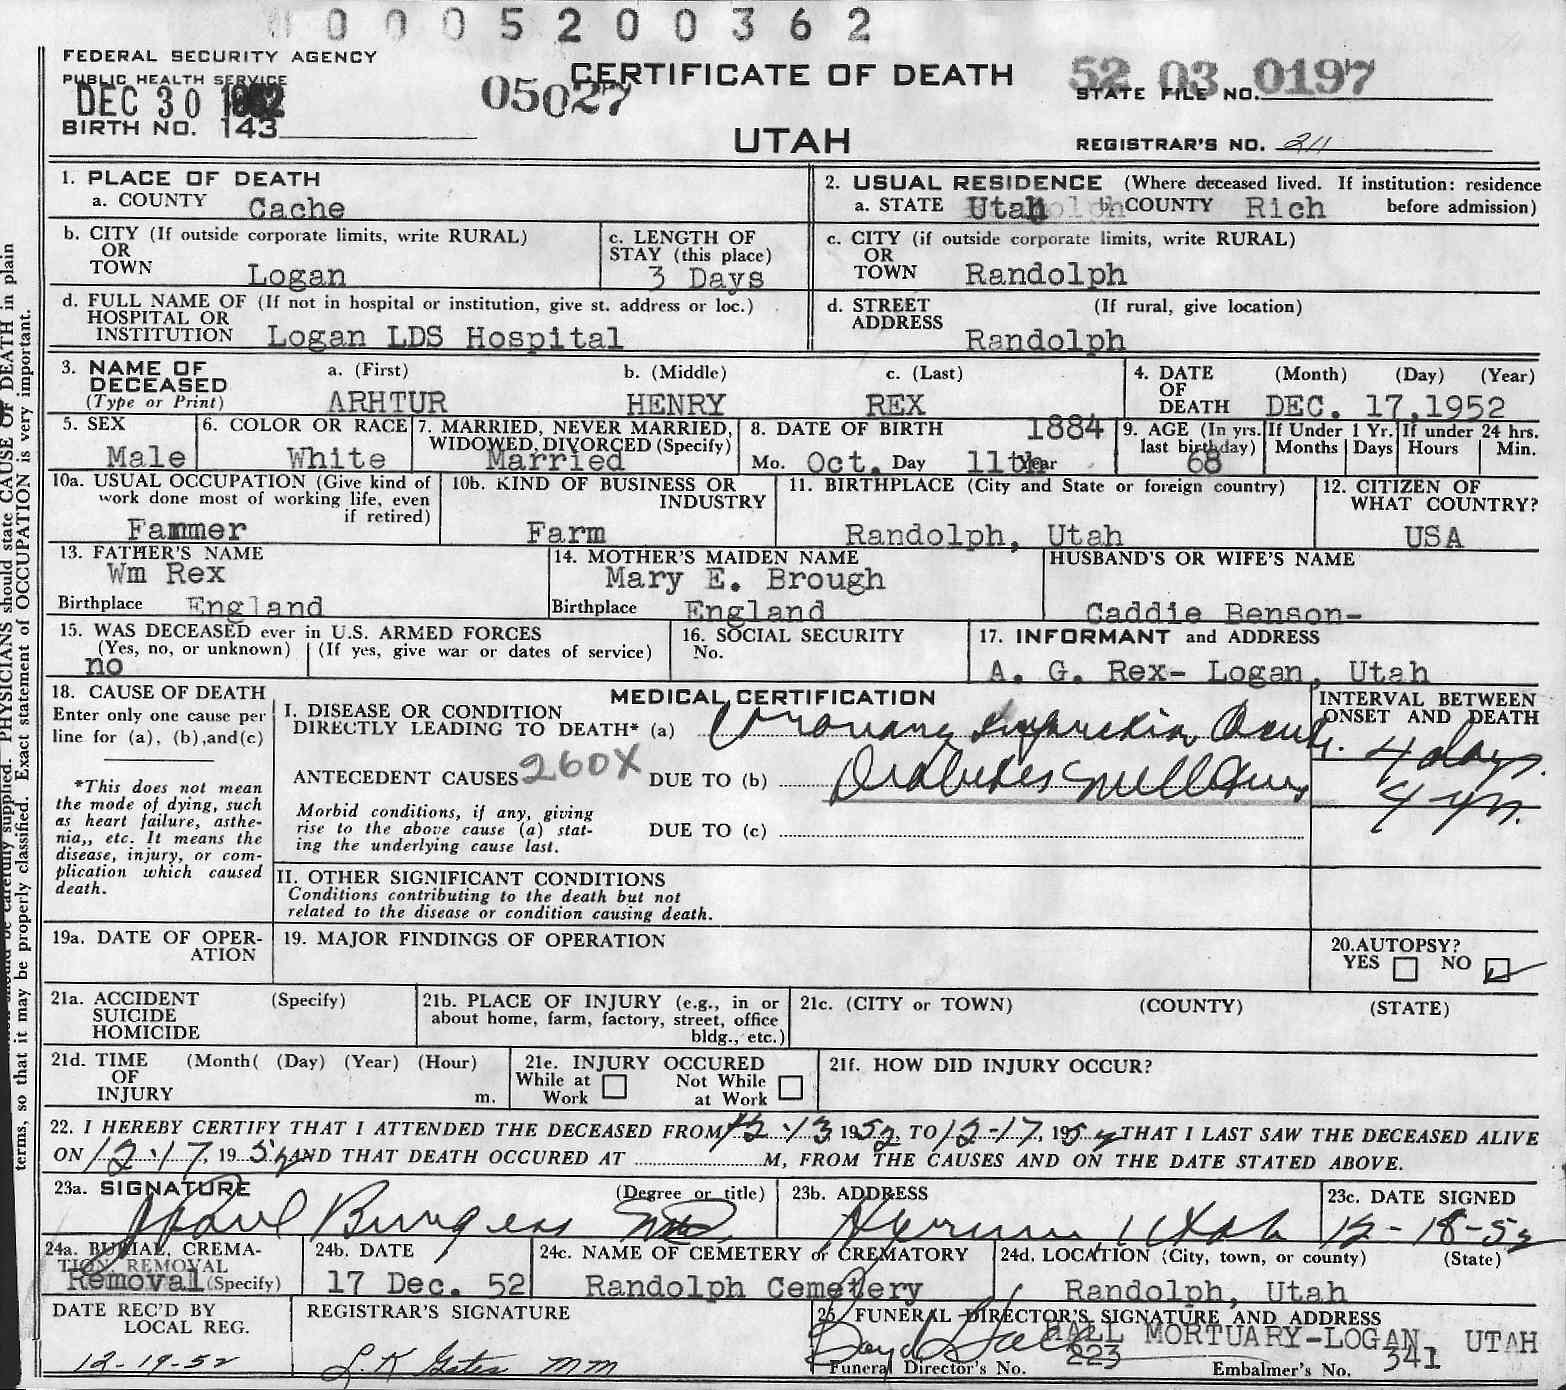 0005200362
FEDERAL SECURITY AGENCY
PUBLIC HEALTH SERVICE
DEC 30 1952
BIRTH NO. 143
05027
CERTIFICATE OF DEATH
UTAH
52 03 0197
STATE FILE NO.
REGISTRAR'S NO. 211
1. PLACE OF DEATH
a. COUNTY Cache
2. USUAL RESIDENCE (Where deceased lived. If institution: residence before admission)
a. STATE Utah b. COUNTY Rich
b. CITY (If outside corporate limits, write RURAL)
OR
TOWN Logan
c. LENGTH OF
STAY (this place)
3 Days
c. CITY (if outside corporate limits, write RURAL)
OR
TOWN Randolph
d. FULL NAME OF (If not in hospital or institution, give st. address or loc.)
HOSPITAL OR
INSTITUTION Logan LDS Hospital
d. STREET (If rural, give location)
ADDRESS
Randolph
3. NAME OF
DECEASED
(Type or Print)
a. (First) b. (Middle) c. (Last)
ARHTUR HENRY REX
4. DATE (Month) (Day) (Year)
OF
DEATH DEC. 17,1952
5. SEX
Male
6. COLOR OR RACE
White
7. MARRIED, NEVER MARRIED,
WIDOWED, DIVORCED (Specify)
Married
8. DATE OF BIRTH 1884
Mo. Oct. Day 11th Year
9. AGE (In yrs. last birthday)
68
If Under 1 Yr.
Months Days
If under 24 hrs.
Hours Min.
10a. USUAL OCCUPATION (Give kind of
work done most of working life, even
if retired)
Fammer
10b. KIND OF BUSINESS OR
INDUSTRY
Farm
11. BIRTHPLACE (City and State or foreign country)
Randolph, Utah
12. CITIZEN OF
WHAT COUNTRY?
USA
13. FATHER'S NAME
Wm Rex
Birthplace England
14. MOTHER'S MAIDEN NAME
Mary E. Brough
Birthplace England
HUSBAND'S OR WIFE'S NAME
Caddie Benson-
15. WAS DECEASED ever in U.S. ARMED FORCES
(Yes, no, or unknown) (If yes, give war or dates of service)
no
16. SOCIAL SECURITY
No.
17. INFORMANT and ADDRESS
A. G. Rex- Logan, Utah
18. CAUSE OF DEATH
Enter only one cause per
line for (a), (b),and(c)
*This does not mean
the mode of dying, such
as heart failure, asthe-
nia,, etc. It means the
disease, injury, or com-
plication which caused
death.
MEDICAL CERTIFICATION
INTERVAL BETWEEN
ONSET AND DEATH
I. DISEASE OR CONDITION
DIRECTLY LEADING TO DEATH* (a) Coronary Infarction Acute. 4 days.
ANTECEDENT CAUSES 260X DUE TO (b) Diabetes Mellitus 4 yr.
Morbid conditions, if any, giving
rise to the above cause (a) stat-
ing the underlying cause last.
DUE TO (c)
II. OTHER SIGNIFICANT CONDITIONS
Conditions contributing to the death but not
related to the disease or condition causing death.
19a. DATE OF OPER-
ATION
19. MAJOR FINDINGS OF OPERATION
20.AUTOPSY?
YES NO
21a. ACCIDENT (Specify)
SUICIDE
HOMICIDE
21b. PLACE OF INJURY (e.g., in or
about home, farm, factory, street, office
bldg., etc.)
21c. (CITY or TOWN) (COUNTY) (STATE)
21d. TIME (Month( (Day) (Year) (Hour)
OF
INJURY m.
21e. INJURY OCCURED
While at
Work
Not While
at Work
21f. HOW DID INJURY OCCUR?
22. I HEREBY CERTIFY THAT I ATTENDED THE DECEASED FROM 12-13, 1952, TO 12-17, 1952 THAT I LAST SAW THE DECEASED ALIVE
ON 12-17, 1952 AND THAT DEATH OCCURED AT M, FROM THE CAUSES AND ON THE DATE STATED ABOVE.
23a. SIGNATURE (Degree or title)
Burgess MD
23b. ADDRESS
Utah
23c. DATE SIGNED
12-18-52
24a. BURIAL, CREMA-
TION, REMOVAL
Removal (Specify)
24b. DATE
17 Dec. 52
24c. NAME OF CEMETERY or CREMATORY
Randolph Cemetery
24d. LOCATION (City, town, or county) (State)
Randolph, Utah
DATE REC'D BY
LOCAL REG.
12-19-52
REGISTRAR'S SIGNATURE
25. FUNERAL DIRECTOR'S SIGNATURE AND ADDRESS
Boyd Hall HALL MORTUARY-LOGAN UTAH
Funeral Director's No. 223 Embalmer's No. 341
PHYSICIANS should state CAUSE OF DEATH in plain
terms, so that it may be properly classified. Exact statement of OCCUPATION is very important.